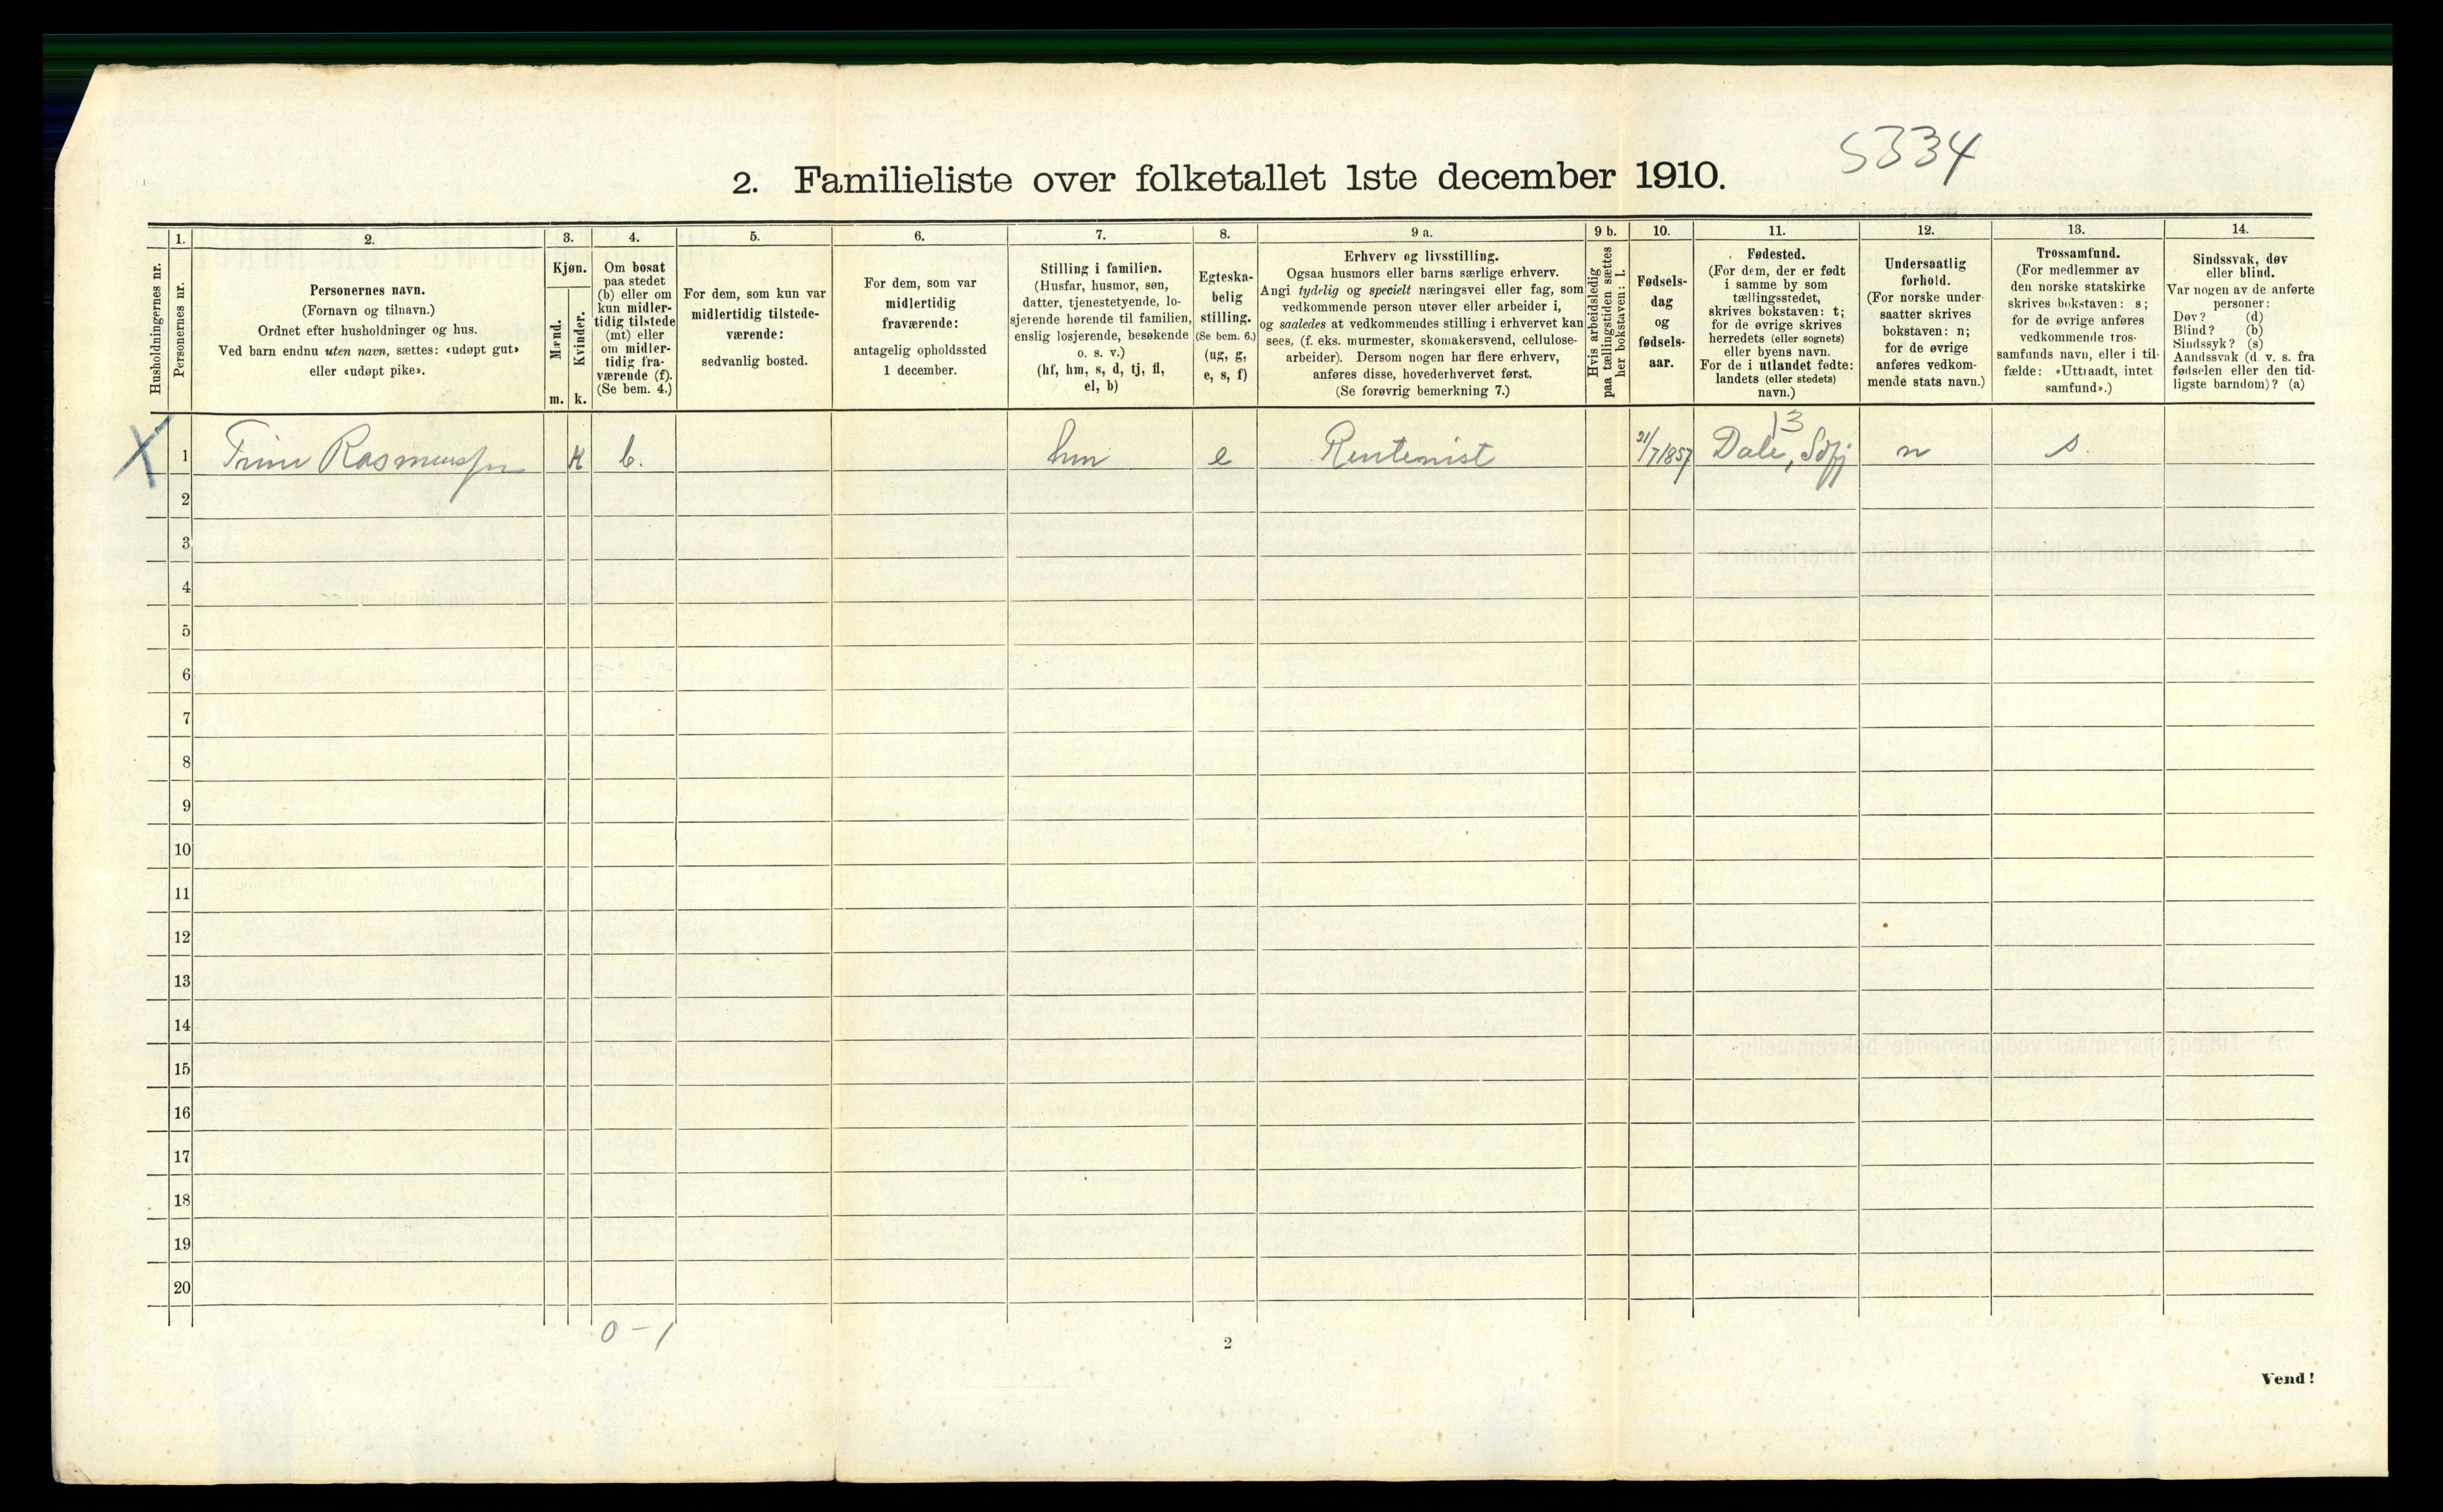 S334
2. Familieliste over folketallet 1ste december 1910.
Husholdningernes nr.
1.
Personernes nr.
2.
Personernes navn.
(Fornavn og tilnavn.)
Ordnet efter husholdninger og hus.
Ved barn endnu uten navn, sættes: «udøpt gut»
eller «udøpt pike».
3.
Kjøn.
Mænd.
Kvinder.
m. k.
4.
Om bosat
paa stedet
(b) eller om
kun midler-
tidig tilstede
(mt) eller
om midler-
tidig fra-
værende (f).
(Se bem. 4.)
5.
For dem, som kun var
midlertidig tilstede-
værende:
sedvanlig bosted.
6.
For dem, som var
midlertidig
fraværende:
antagelig opholdssted
1 december.
7.
Stilling i familien.
(Husfar, husmor, søn,
datter, tjenestetyende, lo-
sjerende hørende til familien,
enslig losjerende, besøkende
o. s. v.)
(hf, hm, s, d, tj, fl,
el, b)
8.
Egteska-
belig
stilling.
(Se bem. 6.)
(ug, g,
e, s, f)
9 a.
Erhverv og livsstilling.
Ogsaa husmors eller barns særlige erhverv.
Angi tydelig og specielt næringsvei eller fag, som
vedkommende person utøver eller arbeider i,
og saaledes at vedkommendes stilling i erhvervet kan
sees, (f. eks. murmester, skomakersvend, cellulose-
arbeider). Dersom nogen har flere erhverv,
anføres disse, hovederhvervet først.
(Se forøvrig bemerkning 7.)
9 b.
Hvis arbeidsledig
paa tællingstiden sættes
her bokstaven: l.
10.
Fødsels-
dag
og
fødsels-
aar.
11.
Fødested.
(For dem, der er født
i samme by som
tællingsstedet,
skrives bokstaven: t;
for de øvrige skrives
herredets (eller sognets)
eller byens navn.
For de i utlandet fødte:
landets (eller stedets)
navn.)
12.
Undersaatlig
forhold.
(For norske under-
saatter skrives
bokstaven: n;
for de øvrige
anføres vedkom-
mende stats navn.)
13.
Trossamfund.
(For medlemmer av
den norske statskirke
skrives bokstaven: s;
for de øvrige anføres
vedkommende tros-
samfunds navn, eller i til-
fælde: «Uttraadt, intet
samfund».)
14.
Sindssvak, døv
eller blind.
Var nogen av de anførte
personer:
Døv? (d)
Blind? (b)
Sindssyk? (s)
Aandssvak (d. v. s. fra
fødselen eller den tid-
ligste barndom)? (a)
13
X 1 Trine Rasmussen K b. hm e Rentenist 21/7 1857 Dale, Sdfj n s.
2
3
4
5
6
7
8
9
10
11
12
13
14
15
16
17
18
19
20
0-1
2
Vend!